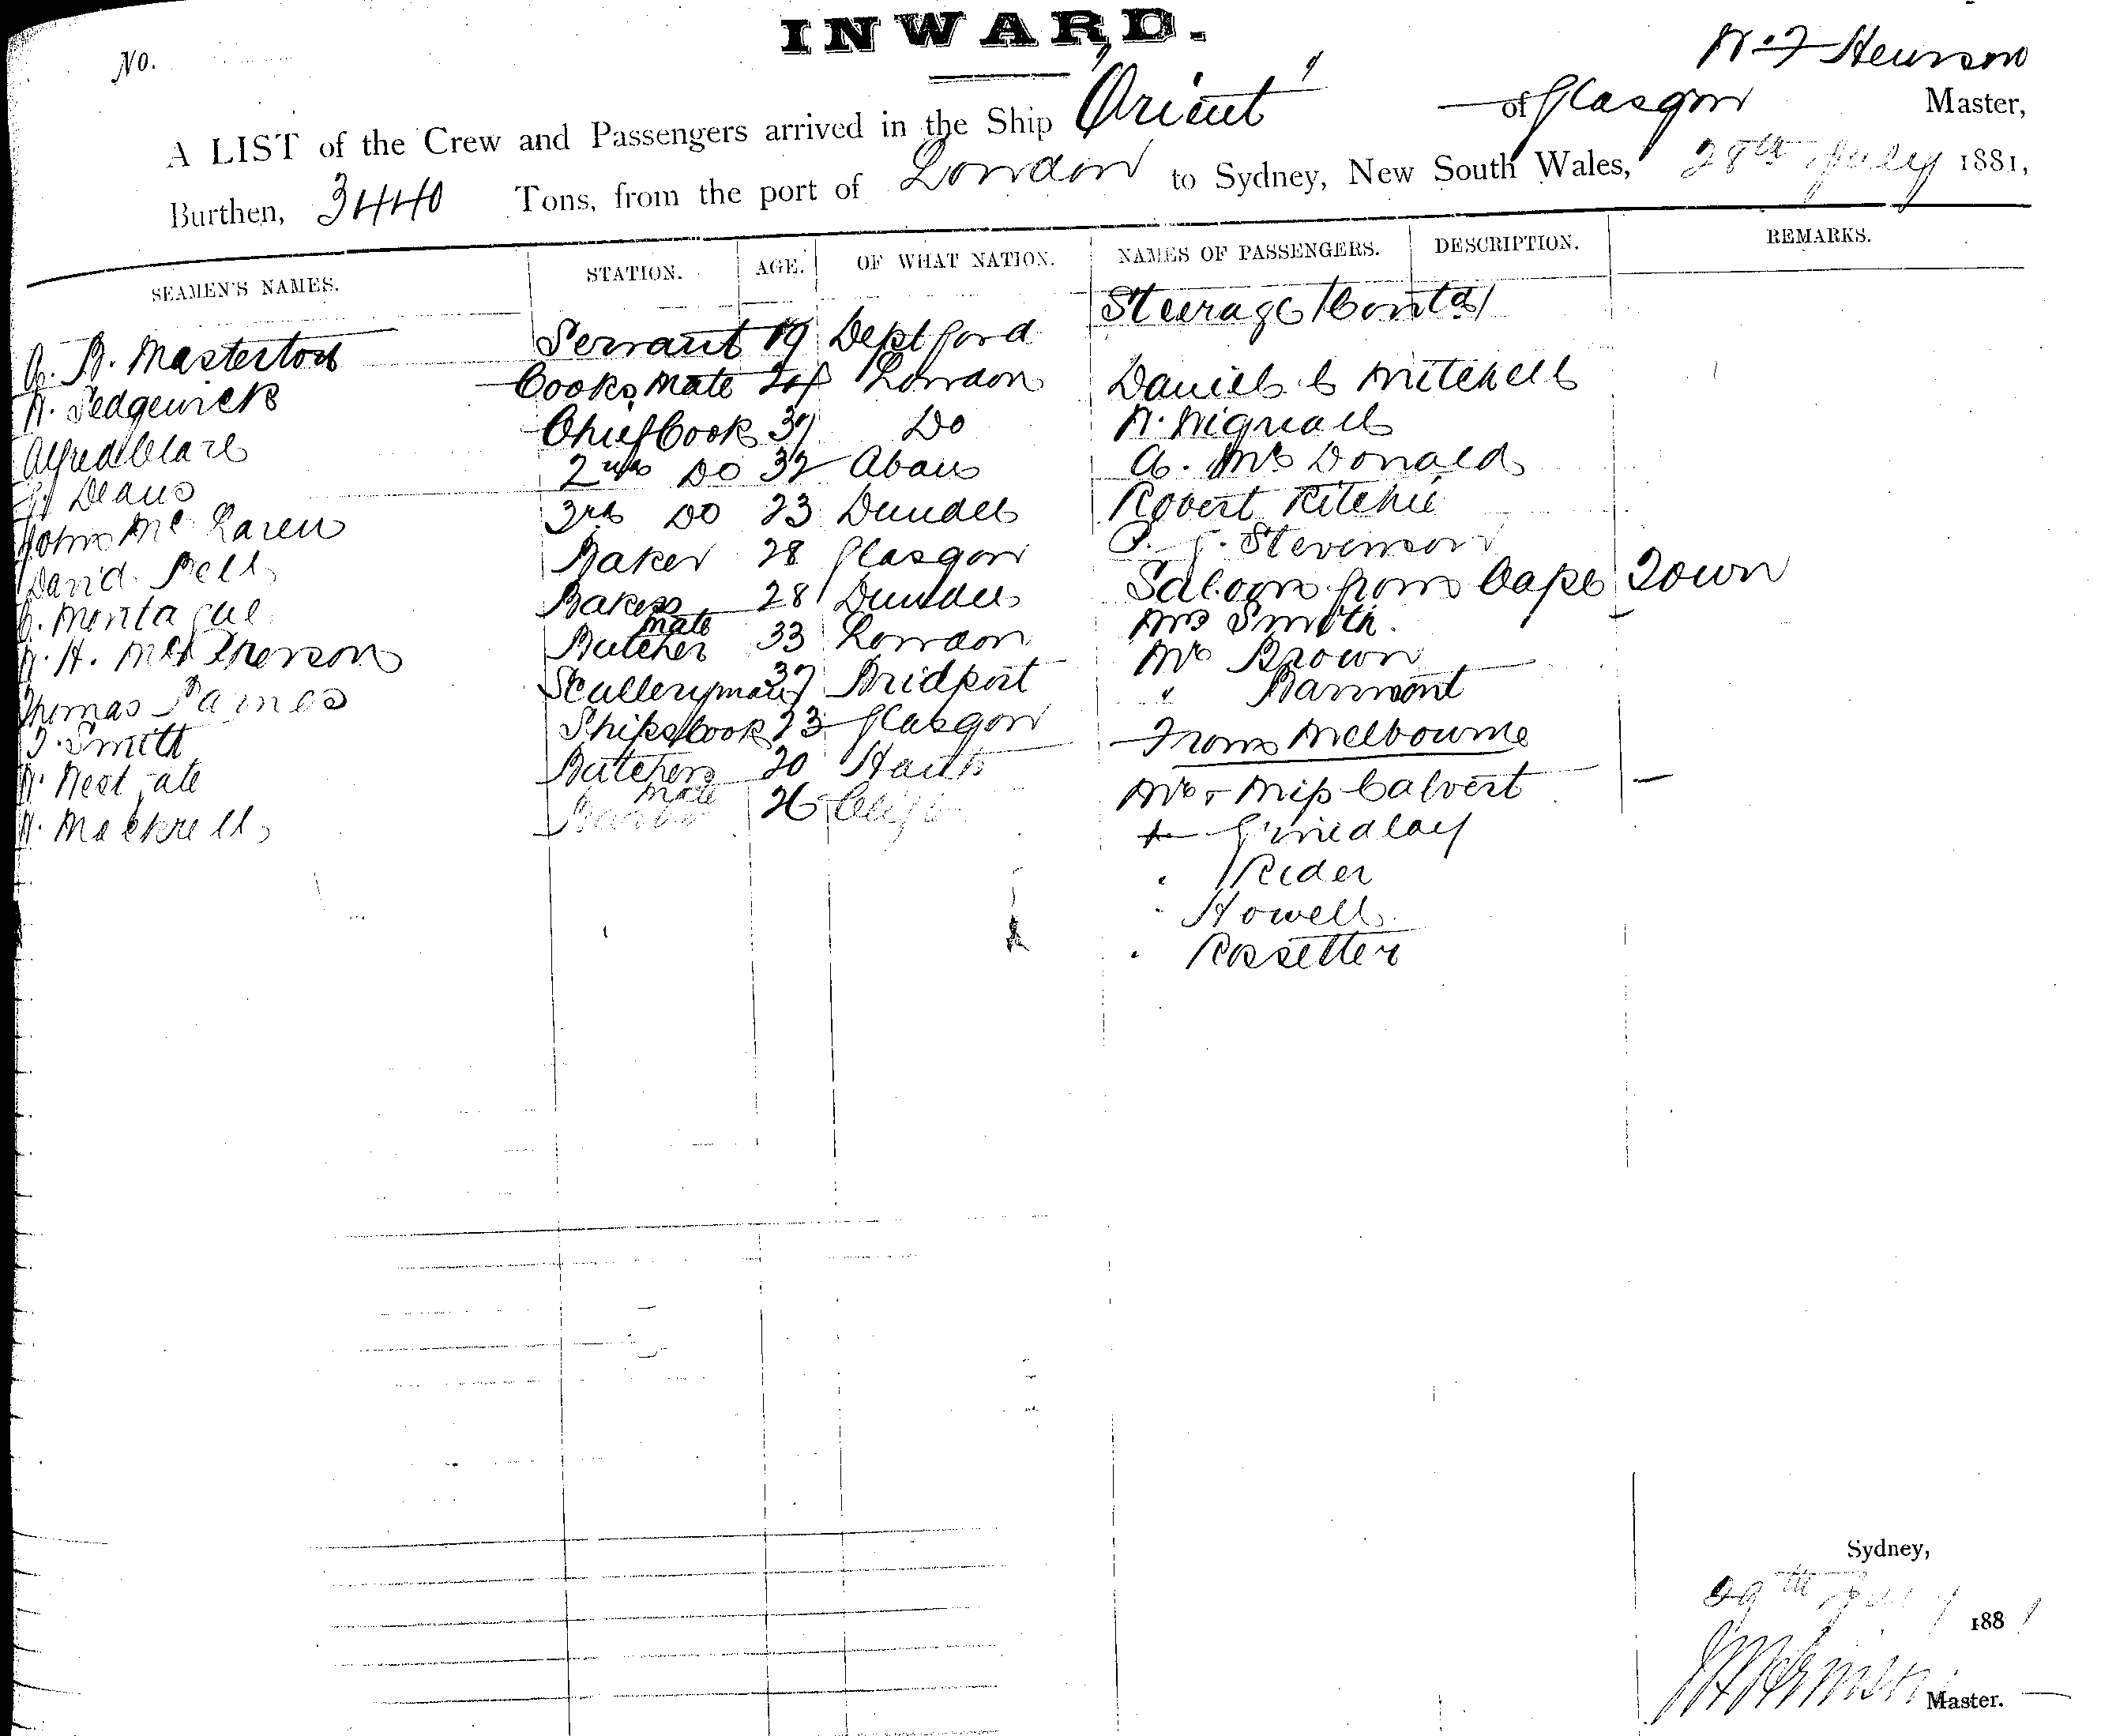 INWARD.
No.
W. F. Hewson
A LIST of the Crew and Passengers arrived in the Ship "Orient" of Glasgow Master,
Burthen, 3440 Tons, from the port of London to Sydney, New South Wales, 28th July 1881,
SEAMEN'S NAMES. STATION. AGE. OF WHAT NATION. NAMES OF PASSENGERS. DESCRIPTION. REMARKS.
Steerage (Contd)
B. Masterton Servant 19 Deptford
W. Sedgewick Cooks Mate 24 London Daniel C Mitchell
Alfred Clare Chief Cook 37 Do W. Wignall
Deans 2nd Do 32 A. Mc Donald
John Mc Laren 3rd Do 23 Dundee Robert Ritchie
David Bell Baker 28 Glasgow Stevenson
Montague Bakers mate 28 Dundee Saloon from Cape Town
W. H. McPherson Butcher 33 London Mrs Smith.
Thomas Barnes Sculleryman 37 Bridport Mr Brown
J. Smith Ships Cook 23 Glasgow " Barmont
W. Westgate Butchers mate 20 Hants From Melbourne
W. Mackrell 26 Mr & Miss Calvert
Grindlay
Rider
Howell
Rossetter
Sydney,
29th July 1881
Master.